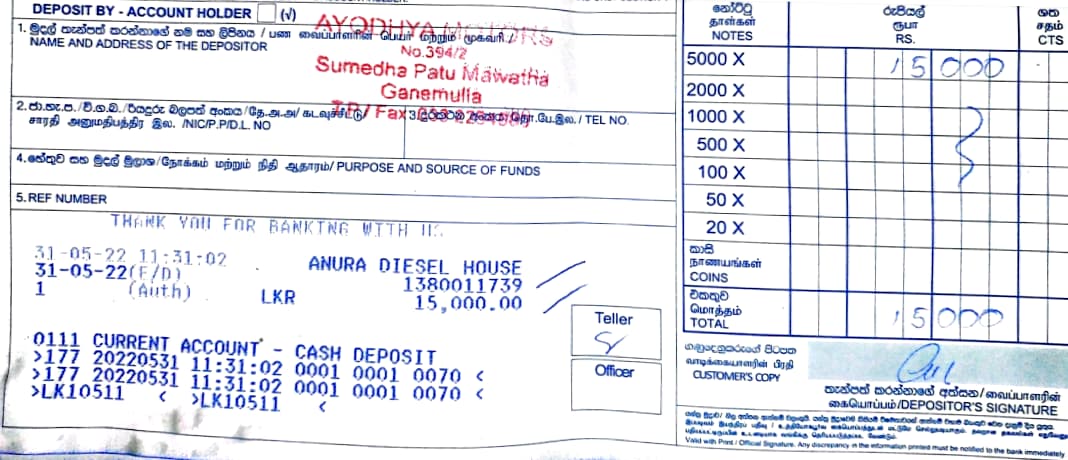 DEPOSIT BY - ACCOUNT HOLDER (√)
AYODHYA MOTORS
No.394/2
Sumedha Patu Mawatha
Ganemulla
1. මුදල් තැන්පත් කරන්නාගේ නම සහ ලිපිනය / பண வைப்பாளரின் பெயர் மற்றும் முகவரி /
NAME AND ADDRESS OF THE DEPOSITOR
TP/ Fax
සාරථි அනுமதிபத்திர இல. /NIC/P.P/D.L. NO
/ TEL NO.
4. හේතුව සහ මුදල් මූලාශ්‍ර/நோக்கம் மற்றும் நிதி ஆதாரம்/ PURPOSE AND SOURCE OF FUNDS
5. REF NUMBER
THANK YOU FOR BANKING WITH US
31-05-22 11:31:02
31-05-22(E/D) ANURA DIESEL HOUSE
1380011739
1 (Auth) LKR 15,000.00
0111 CURRENT ACCOUNT - CASH DEPOSIT
>177 20220531 11:31:02 0001 0001 0070 <
>177 20220531 11:31:02 0001 0001 0070 <
>LK10511 < >LK10511 <
Teller
Officer
නෝට්ටු
தாள்கள்
NOTES
රුපියල්
ரூபா
RS.
ශත
சதம்
CTS
5000 X 15000
2000 X
1000 X
500 X
100 X
50 X
20 X
කාසි
நாணயங்கள்
COINS
එකතුව
மொத்தம்
TOTAL 15000
ගනුදෙනුකරුගේ පිටපත
வாடிக்கையாளரின் பிரதி
CUSTOMER'S COPY
තැන්පත් කරන්නාගේ අත්සන/வைப்பாளரின்
கையொப்பம்/DEPOSITOR'S SIGNATURE
Valid with Print / Official Signature. Any discrepancy in the information printed must be notified to the bank immediately